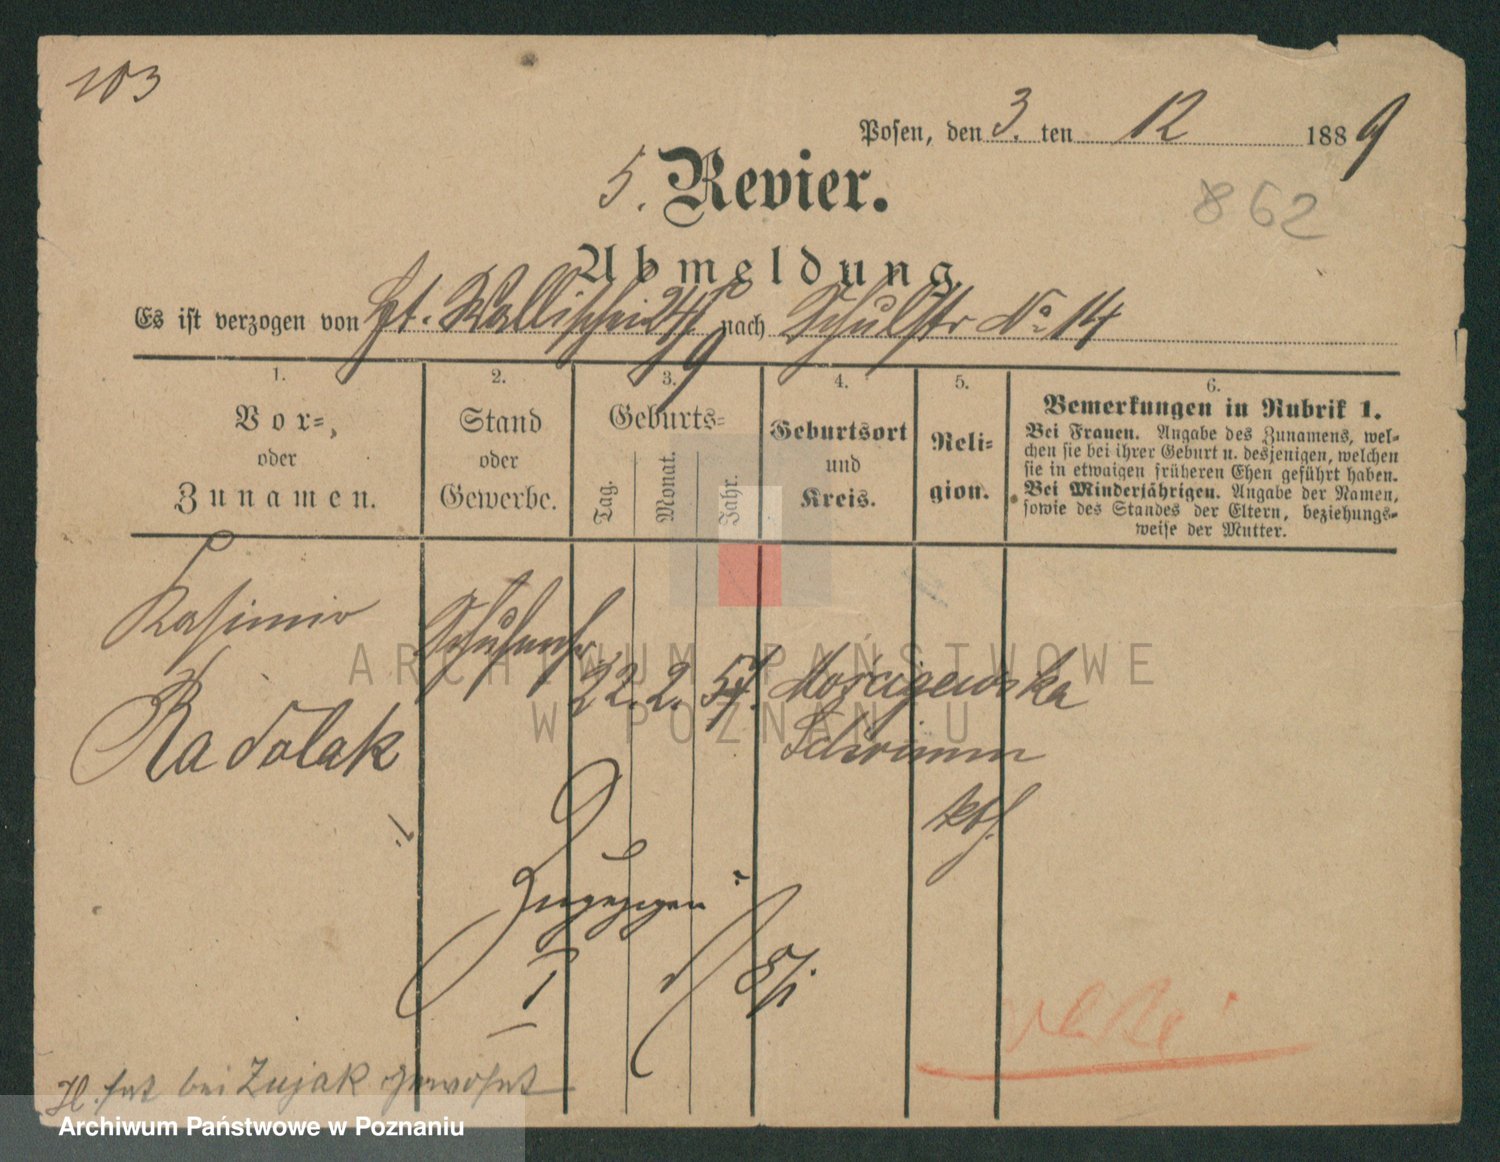 103
Posen, den 3. ten 12 1889
862
5. Revier.
Abmeldung
Es ist verzogen von Wallischei nach Schulstr No 14
1.
Vor-,
oder
Zunamen.
2.
Stand
oder
Gewerbe.
3.
Geburts-
Tag.
Monat.
Jahr.
4.
Geburtsort
und
Kreis.
5.
Reli-
gion.
6.
Bemerkungen in Rubrik 1.
Bei Frauen. Angabe des Zunamens, wel-
chen sie bei ihrer Geburt u. desjenigen, welchen
sie in etwaigen früheren Ehen geführt haben.
Bei Minderjährigen. Angabe der Namen,
sowie des Standes der Eltern, beziehungs-
weise der Mutter.
Kasimir
Radolak
22. 2. 57.
Schrimm
kth.
Zugezogen
H. hat bei Zujak gewohnt
ARCHIWUM PAŃSTWOWE
W POZNANIU
Archiwum Państwowe w Poznaniu